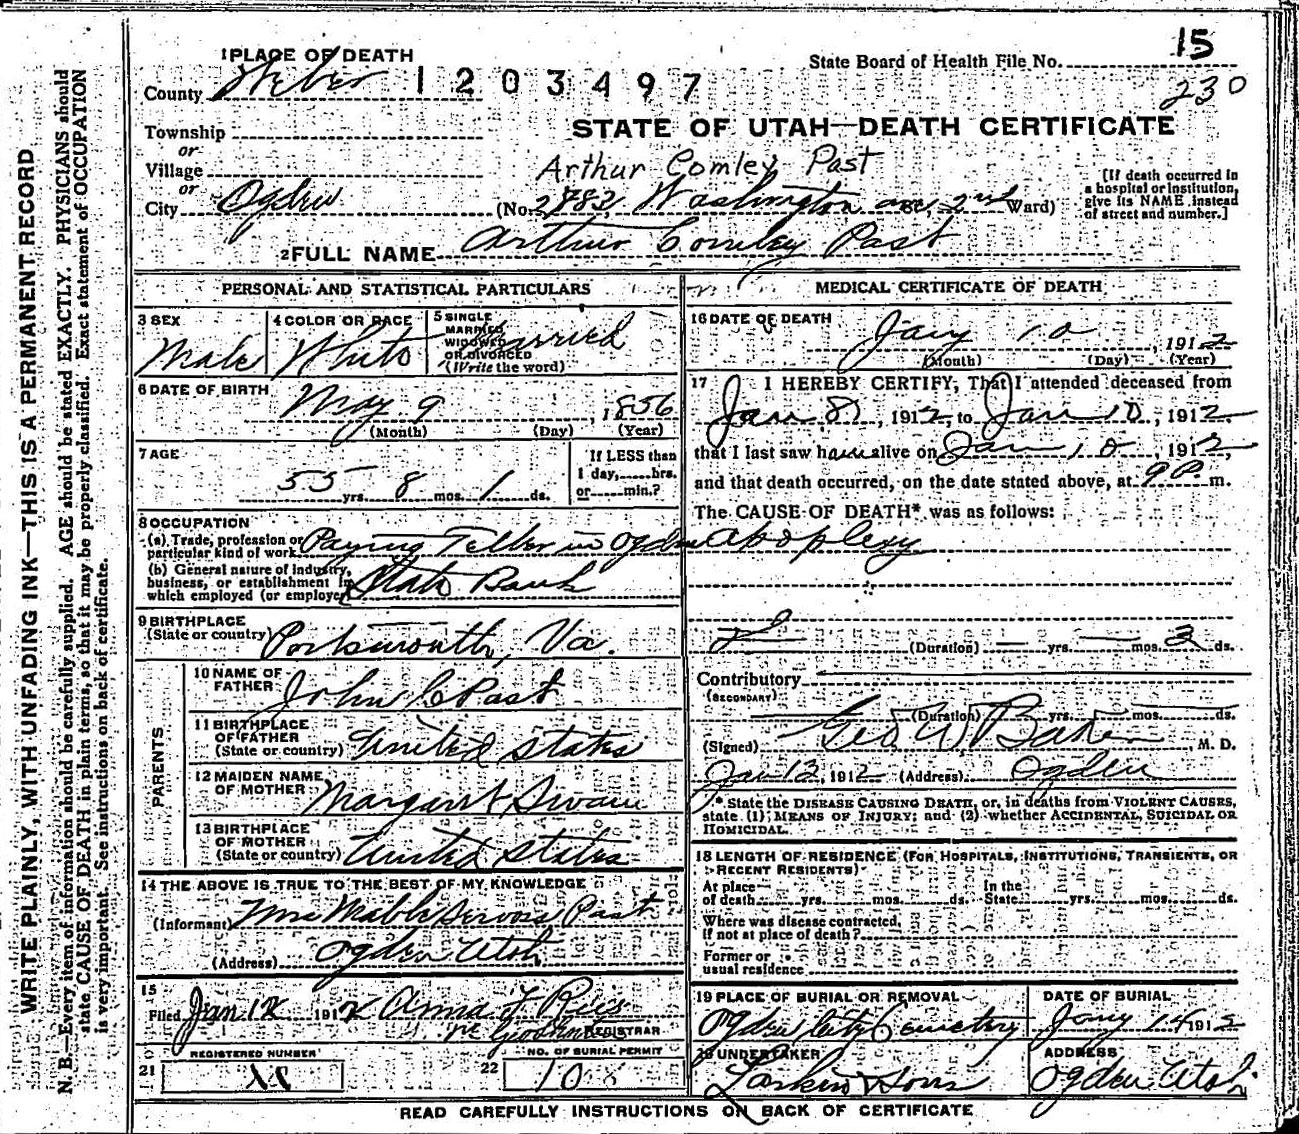 15
State Board of Health File No.
230
1 PLACE OF DEATH
County Weber 1203497
STATE OF UTAH—DEATH CERTIFICATE
Township
or
Village
or
City Ogden
Arthur Comley Past
(No. 2882, Washington ave St., 2nd Ward)
[If death occurred in
a hospital or institution,
give its NAME instead
of street and number.]
2 FULL NAME Arthur Comley Past
PERSONAL AND STATISTICAL PARTICULARS
3 SEX
Male
4 COLOR OR RACE
White
5 SINGLE
MARRIED
WIDOWED
OR DIVORCED
(Write the word)
Married
6 DATE OF BIRTH
May 9, 1856
(Month) (Day) (Year)
7 AGE
55 yrs. 8 mos. 1 ds.
If LESS than
1 day, hrs.
or min.?
8 OCCUPATION
(a) Trade, profession or
particular kind of work Paying Teller in Ogden
(b) General nature of industry,
business, or establishment in
which employed (or employer) State Bank
9 BIRTHPLACE
(State or country) Portsmouth, Va.
PARENTS
10 NAME OF
FATHER John C Past
11 BIRTHPLACE
OF FATHER
(State or country) United States
12 MAIDEN NAME
OF MOTHER Margaret Swain
13 BIRTHPLACE
OF MOTHER
(State or country) United States
14 THE ABOVE IS TRUE TO THE BEST OF MY KNOWLEDGE
(Informant) Mrs Mable Servoss Past
(Address) Ogden Utah
15
Filed Jan 12 1912 Anna F Rice
REGISTRAR
REGISTERED NUMBER
21
NO. OF BURIAL PERMIT
22 108
MEDICAL CERTIFICATE OF DEATH
16 DATE OF DEATH
Jany 10, 1912
(Month) (Day) (Year)
17 I HEREBY CERTIFY, That I attended deceased from
Jan 8, 1912, to Jan 10, 1912,
that I last saw him alive on Jan 10, 1912,
and that death occurred, on the date stated above, at 9 P. m.
The CAUSE OF DEATH* was as follows:
Apoplexy
(Duration) yrs. mos. 3 ds.
Contributory
(SECONDARY)
(Duration) yrs. mos. ds.
(Signed) Geo W Baker M. D.
Jan 12, 1912 (Address) Ogden
* State the DISEASE CAUSING DEATH, or, in deaths from VIOLENT CAUSES,
state (1) MEANS OF INJURY; and (2) whether ACCIDENTAL, SUICIDAL OR
HOMICIDAL.
18 LENGTH OF RESIDENCE (FOR HOSPITALS, INSTITUTIONS, TRANSIENTS, OR
RECENT RESIDENTS)
At place
of death yrs. mos. ds.
In the
State yrs. mos. ds.
Where was disease contracted,
if not at place of death?
Former or
usual residence
19 PLACE OF BURIAL OR REMOVAL
Ogden City Cemetery
DATE OF BURIAL
Jany 14 1912
20 UNDERTAKER
Larkin & Sons
ADDRESS
Ogden Utah
READ CAREFULLY INSTRUCTIONS ON BACK OF CERTIFICATE
WRITE PLAINLY, WITH UNFADING INK—THIS IS A PERMANENT RECORD
N. B.—Every item of information should be carefully supplied. AGE should be stated EXACTLY. PHYSICIANS should
state CAUSE OF DEATH in plain terms, so that it may be properly classified. Exact statement of OCCUPATION
is very important. See instructions on back of certificate.